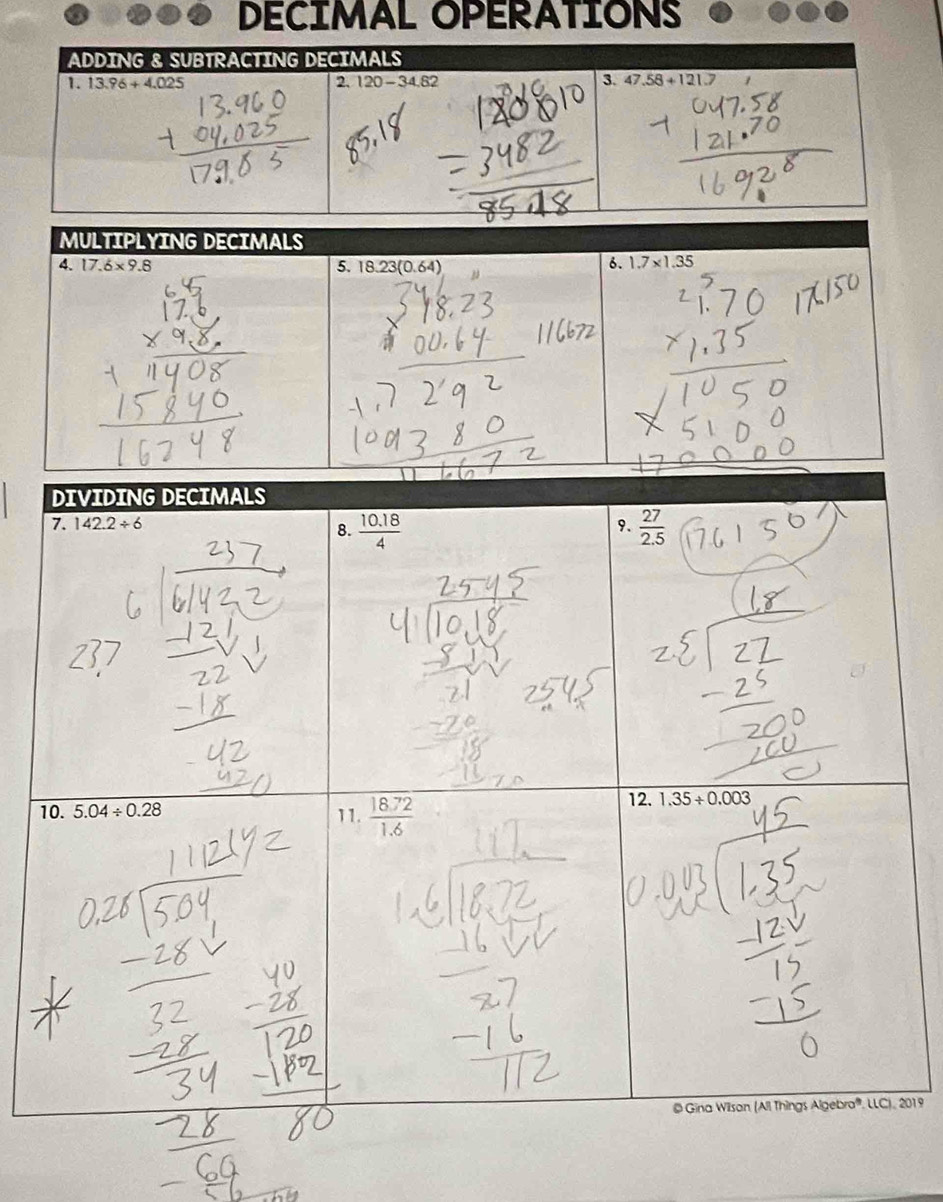 DECIMAL OPERATIONS
ADDING & SUBTRACTING DECIMALS
1. 13.96 + 4.025
13.960
+ 04.025
179.85
2. 120 - 34.82
85.18
3482
85.18
3. 47.58 + 121.7
047.58
+ 121.70
169.28
MULTIPLYING DECIMALS
4. 17.6 × 9.8
17.6
× 9.8
+ 1408
15840
16248
5. 18.23(0.64)
18.23
00.64
116672
7292
109380
116672
6. 1.7 × 1.35
1.70
× 1.35
1050
5100
170000
DIVIDING DECIMALS
7. 142.2 ÷ 6
237
6
-12
22
-18
42
420
23.7
8. 10.18
4
2545
10.18
-8
21
-20
18
2545
9. 27
2.5
1.8
2.5 27
-25
200
200
0
10. 5.04 ÷ 0.28
0.28 504
-28
32
-28
34
28
40
-28
120
80
11. 18.72
1.6
1.6 18.72
-16
27
-16
112
12. 1.35 ÷ 0.003
45
0.003 1.35
-12
15
-15
0
© Gina Wilson (All Things Algebra®, LLC), 2019